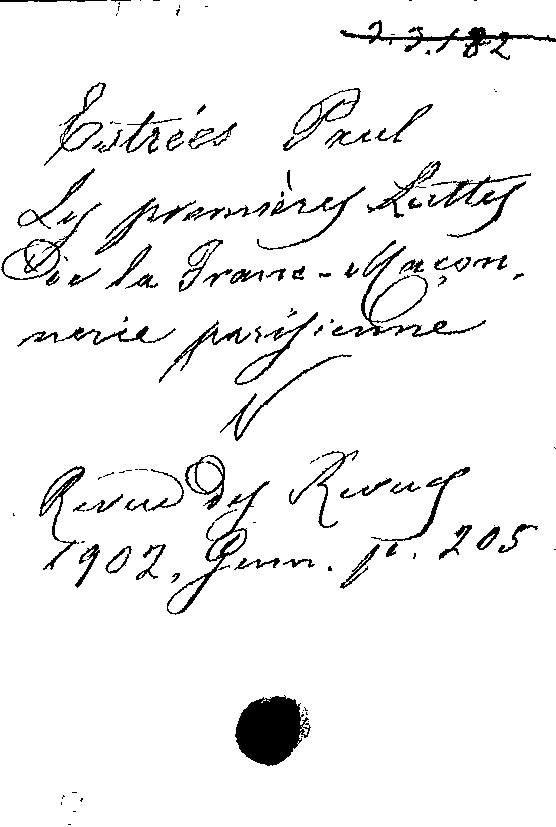 2.3.182
Estrées Paul
Les premières Luttes
De la Franc-Maçon-
nerie parisienne
Revue des Revues
1902, p. 205